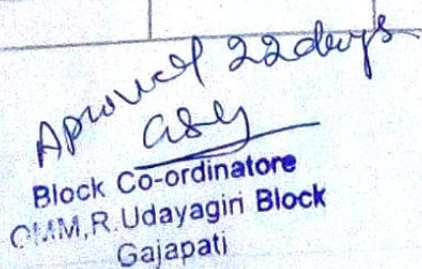 Aproved 22 days
Block Co-ordinatore
OMM,R.Udayagiri Block
Gajapati